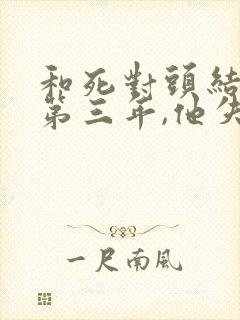 和死對頭結
第三年,他失
一尺南風